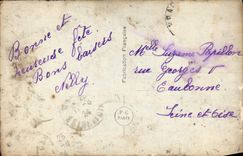 Bonne et
heureuse fête
Bons baisers
Nelly
Fabrication Française
Mlle Suzanne Papillon
rue Georges V
Eaubonne
Seine et Oise